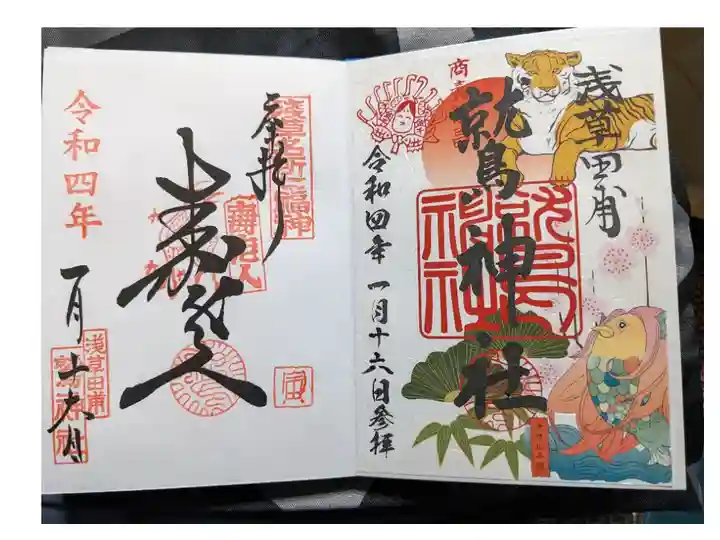 浅草田甫
鷲神社
令和四年 一月十六日参拝
奉拝
浅草名所七福神
寿老人
寿老人
令和四年
一月十六日
浅草田甫
鷲神社